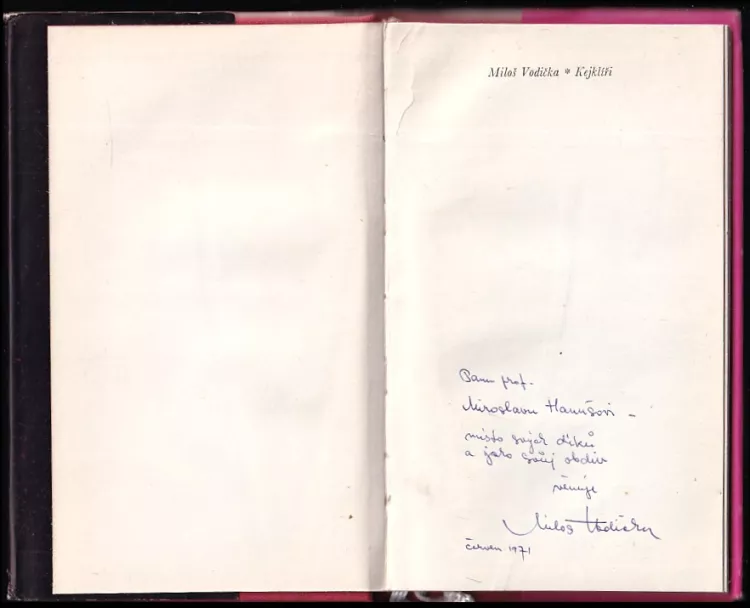 Miloš Vodička * Kejklíři
Panu prof.
Miroslavu Hanušovi –
místo svých díků
a jako svůj obdiv
věnuje
Miloš Vodička
červen 1971